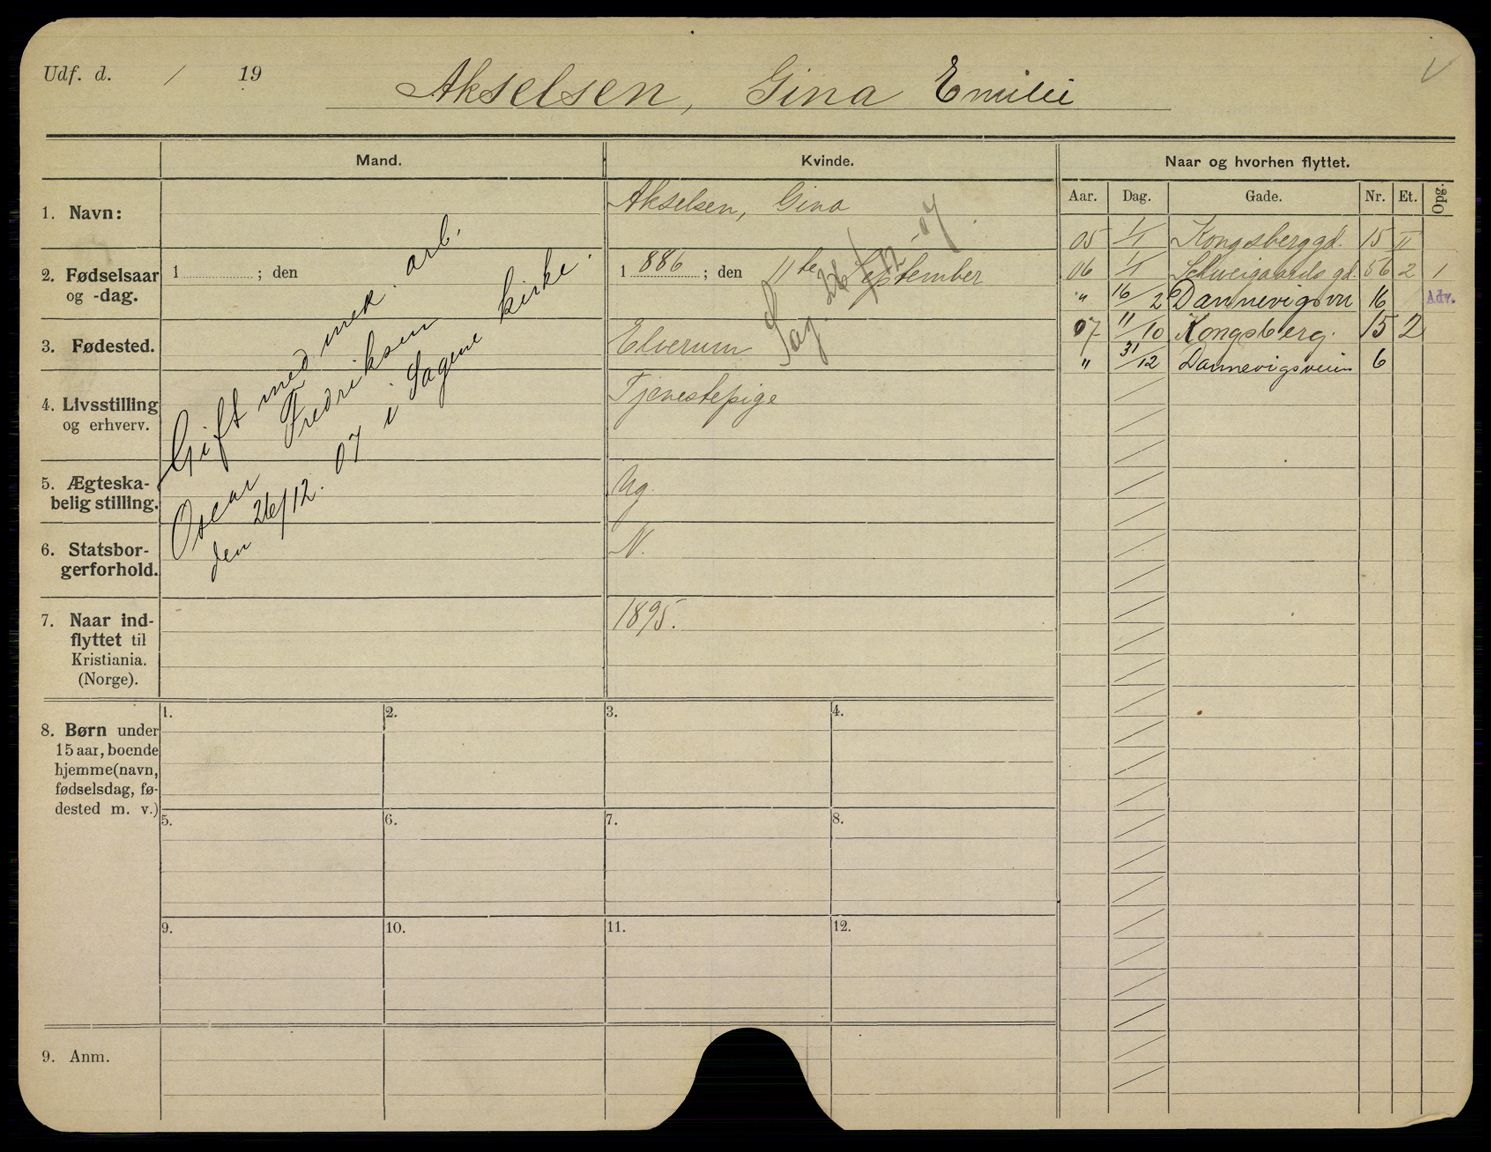 Udf. d. / 19
Akselsen, Gina Emilie
Mand.
Kvinde.
Naar og hvorhen flyttet.
Aar. Dag. Gade. Nr. Et. Opg.
1. Navn:
Akselsen, Gina
2. Fødselsaar
og -dag.
1 ; den
1 886 ; den 11te September
3. Fødested.
Elverum
4. Livsstilling
og erhverv.
Tjenestepige
5. Ægteska-
belig stilling.
Ug.
6. Statsbor-
gerforhold.
N.
7. Naar ind-
flyttet til
Kristiania.
(Norge).
1895.
Gift med mek. arb.
Oscar Fredriksen
den 26/12. 07 i Sagene kirke.
Sag. 26/12-07.
05 1/1 Kongsberggd. 15 II
06 1/1 Schweigaards gd. 56 2 1
" 16/2 Dannevigsvn 16 Adv.
07 11/10 Kongsberg. 15 2
" 31/12 Dannevigsveien 6
8. Børn under
15 aar, boende
hjemme (navn,
fødselsdag, fø-
dested m. v.)
1. 2. 3. 4.
5. 6. 7. 8.
9. 10. 11. 12.
9. Anm.